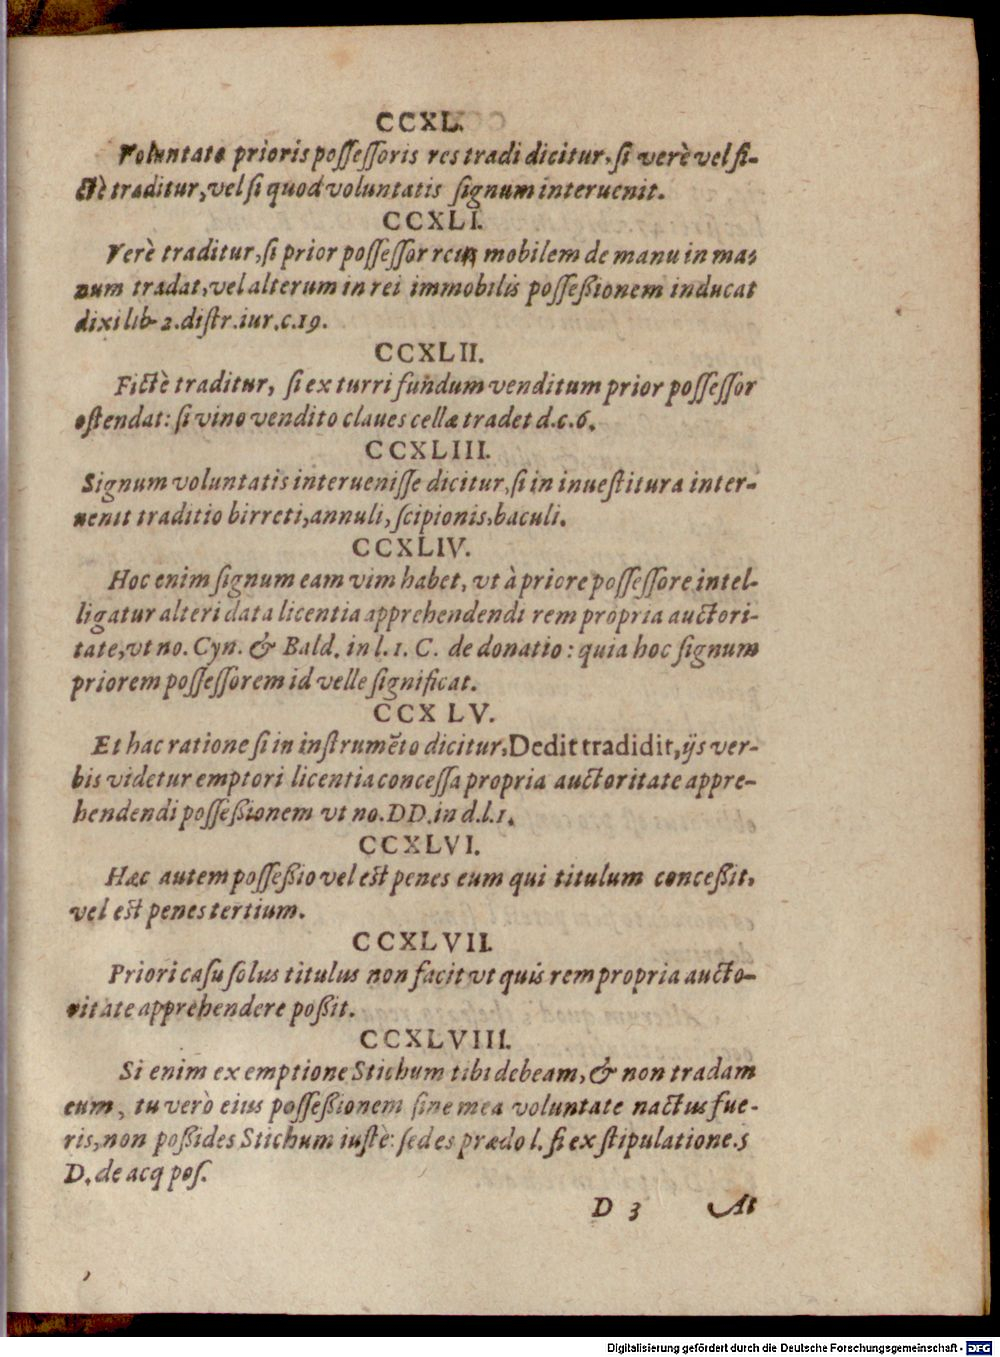 CCXL.
Voluntate prioris possessoris res tradi dicitur, si verè vel fi-
ctè traditur, vel si quod voluntatis signum interuenit.
CCXLI.
Verè traditur, si prior possessor rem mobilem de manu in ma-
num tradat, vel alterum in rei immobilis possessionem inducat
dixi lib. 2. distr. iur. c. 19.
CCXLII.
Fictè traditur, si ex turri fundum venditum prior possessor
ostendat: si vino vendito claues cellæ tradet d. c. 6.
CCXLIII.
Signum voluntatis interuenisse dicitur, si in inuestitura inter-
uenit traditio birreti, annuli, scipionis, baculi.
CCXLIV.
Hoc enim signum eam vim habet, vt à priore possessore intel-
ligatur alteri data licentia apprehendendi rem propria auctori-
tate, vt no. Cyn. & Bald. in l. 1. C. de donatio: quia hoc signum
priorem possessorem id velle significat.
CCXLV.
Et hac ratione si in instrumẽto dicitur, Dedit tradidit, ijs ver-
bis videtur emptori licentia concessa propria auctoritate appre-
hendendi possessionem vt no. DD. in d. l. 1.
CCXLVI.
Hæc autem possessio vel est penes eum qui titulum concessit,
vel est penes tertium.
CCXLVII.
Priori casu solus titulus non facit vt quis rem propria aucto-
ritate apprehendere possit.
CCXLVIII.
Si enim ex emptione Stichum tibi debeam, & non tradam
eum, tu verò eius possessionem sine mea voluntate nactus fue-
ris, non possides Stichum iustè: sed es prædo l. si ex stipulatione. 5
D. de acq pos.
D 3 At
Digitalisierung gefördert durch die Deutsche Forschungsgemeinschaft - DFG